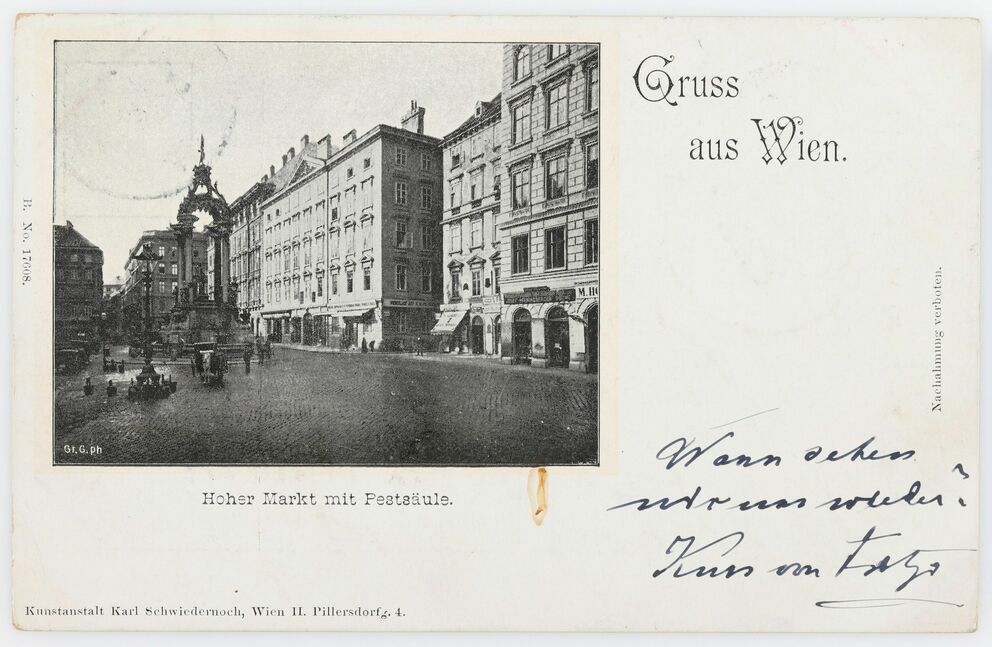 Gruss
aus Wien.
B. No. 17608.
Nachahmung verboten.
M. HO
Gr. G. ph
Hoher Markt mit Pestsäule.
Wann sehen
wir uns wieder?
Kuss von Fritz
Kunstanstalt Karl Schwiedernoch, Wien II. Pillersdorfg. 4.